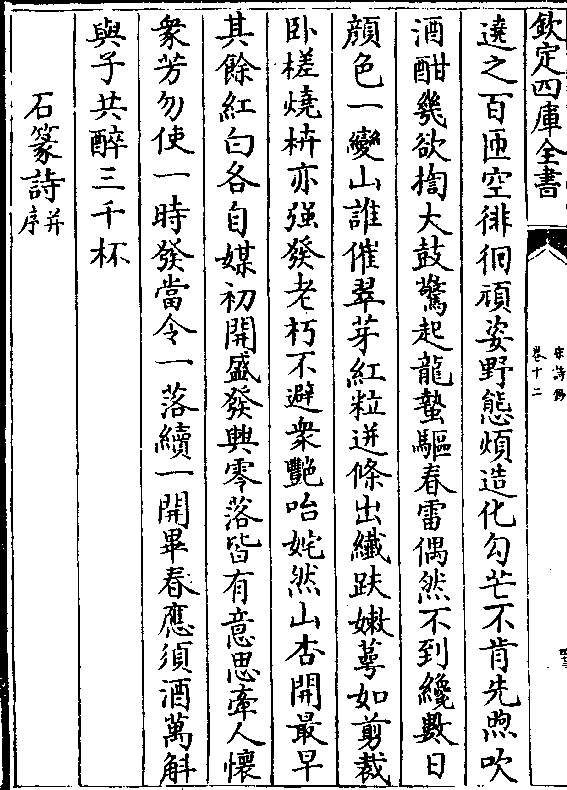 欽定四庫全書
宋詩鈔
卷十二
遶之百匝空徘徊頑姿野態煩造化勾芒不肯先煦吹
酒酣幾欲掏大鼓驚起龍蟄驅春雷偶然不到纔數日
顔色一變山誰催翠芽紅粒迸條出纎趺嫩萼如剪裁
卧槎燒枿亦强發老朽不避衆艷咍姹然山杏開最早
其餘紅白各自媒初開盛發與零落皆有意思牽人懷
衆芳勿使一時發當令一落續一開畢春應須酒萬斛
與子共醉三千杯
石篆詩并序